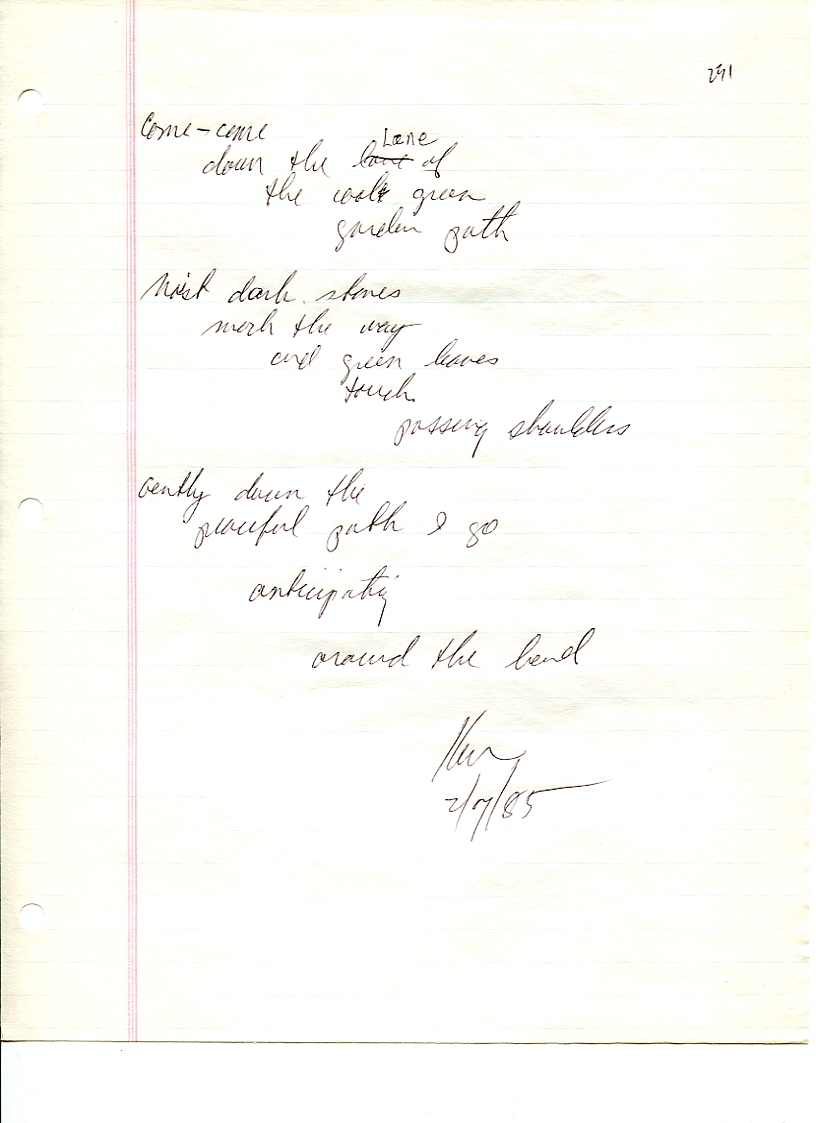 291
Come - come
down the Lane of
the cool green
garden path
Moist dark stones
mark the way
and green leaves
touch
passing shoulders
Gently down the
peaceful path I go
anticipating
around the bend
Ken
2/7/85